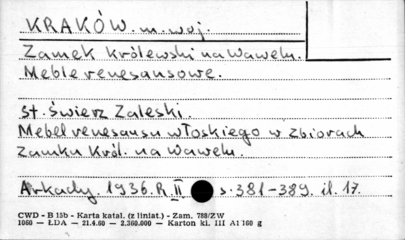 KRAKÓW. m. woj.
Zamek Królewski na Wawelu.
Meble renesansowe.
St. Świerz Zaleski.
Mebel renesansu włoskiego w zbiorach
Zamku Król. na Wawelu.
Arkady. 1936. R. II s. 381-389. il. 17.
CWD - B 15b - Karta katal. (z liniat.) - Zam. 788/ZW
1060 — ŁDA — 21.4.60 - 2.360.000 — Karton kl. III A1 160 g